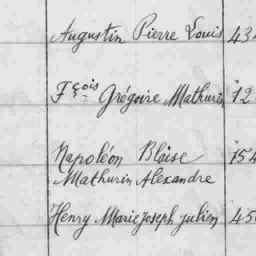 Augustin Pierre Louis 434
Fçois Grégoire Mathurin 12
Napoléon Blaise 154
Mathurin Alexandre
Henry Marie Joseph Julien 45